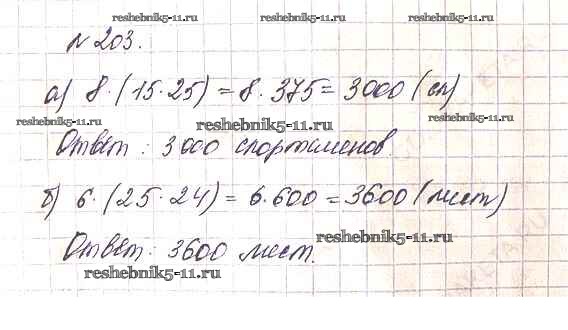 reshebnik5-11.ru reshebnik5-11.ru
№ 203.
reshebnik5-11.ru
а) 8 · (15 · 25) = 8 · 375 = 3000 (сп)
reshebnik5-11.ru reshebnik5-11.ru reshebnik5-11.ru
Ответ: 3000 спортсменов.
б) 6 · (25 · 24) = 6 · 600 = 3600 (мест)
Ответ: 3600 мест.
reshebnik5-11.ru
reshebnik5-11.ru